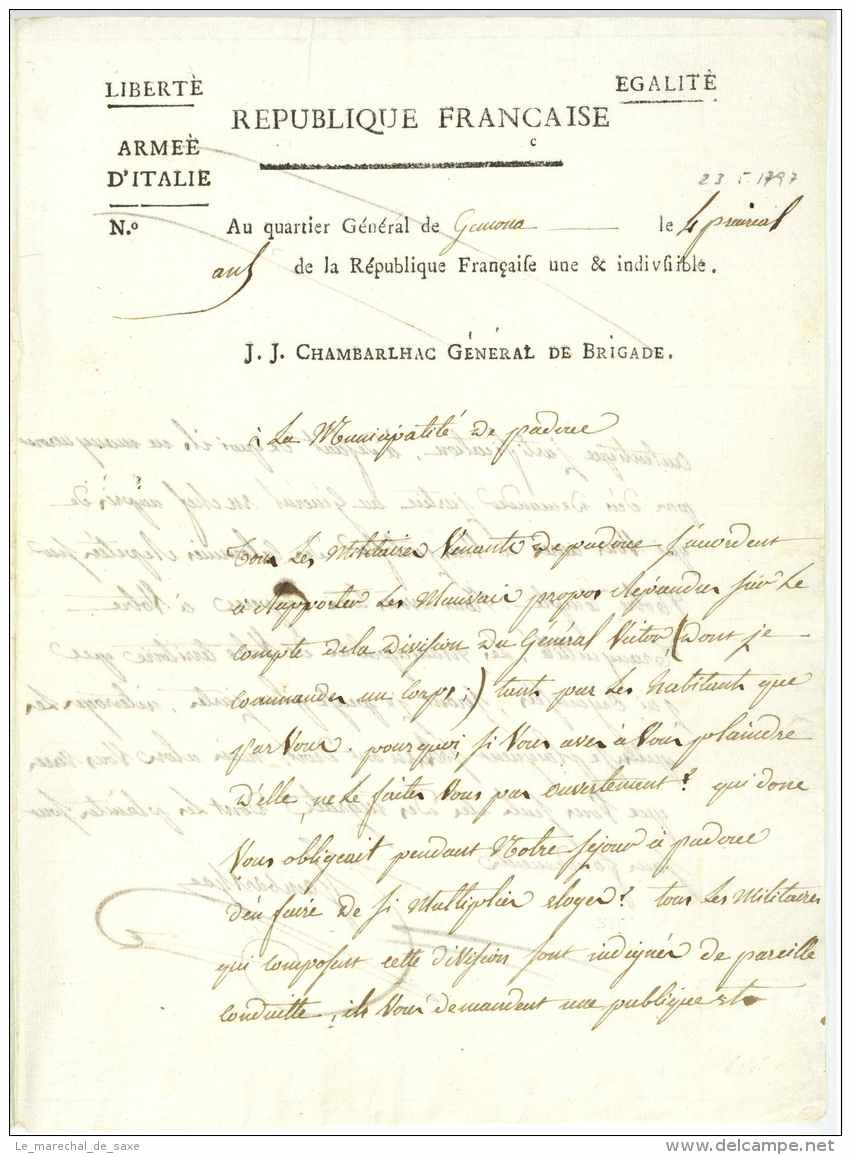 LIBERTÈ
EGALITÈ
REPUBLIQUE FRANCAISE
c
ARMEÈ
D'ITALIE
23 5 1797
N.º Au quartier Général de Gemona le 4 prairial
an 5 de la République Française une & indivsiible.
J. J. CHAMBARLHAC GÉNÉRAL DE BRIGADE.
à La Municipalité de padoue
Tous Les Militaires Venants de padoue s'acordent
a Rapporter Les Mauvais propos Repandus sur Le
compte de la Division du Général Victor (Dont je
commandes un Corps;) tant par Les habitants que
par Vous. pourquoi, si Vous aves à Vous plaindre
D'elle, ne Le faites Vous pas ouvertement? qui donc
Vous obligeait pendant Notre sejour à padoue
d'en faire De si Multiplies eloges? tous Les Militaires
qui composent cette division sont indignés de pareille
conduitte, ils Vous demandent une publique et
Le_marechal_de_saxe
www.delcampe.net